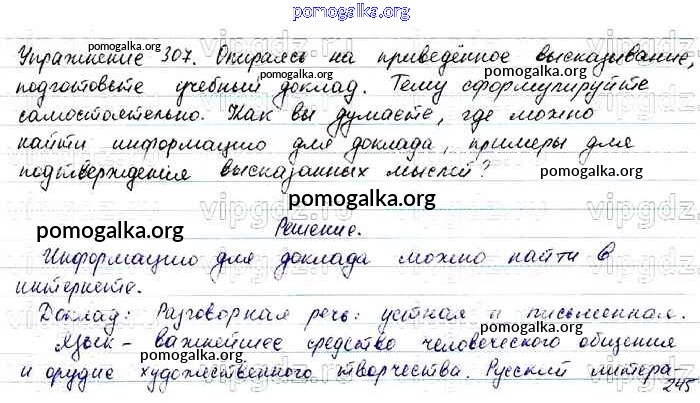 pomogalka.org
Упражнение 307. Опираясь на приведённое высказывание,
pomogalka.org
pomogalka.org
подготовьте учебный доклад. Тему сформулируйте
pomogalka.org
pomogalka.org
самостоятельно. Как вы думаете, где можно
найти информацию для доклада, примеры для
pomogalka.org
pomogalka.org
подтверждения высказанных мыслей?
pomogalka.org
pomogalka.org
Решение.
pomogalka.org
Информацию для доклада можно найти в
интернете.
pomogalka.org
Доклад: Разговорная речь: устная и письменная.
pomogalka.org
Язык - важнейшее средство человеческого общения
pomogalka.org
pomogalka.org
и орудие художественного творчества. Русский литера-
245